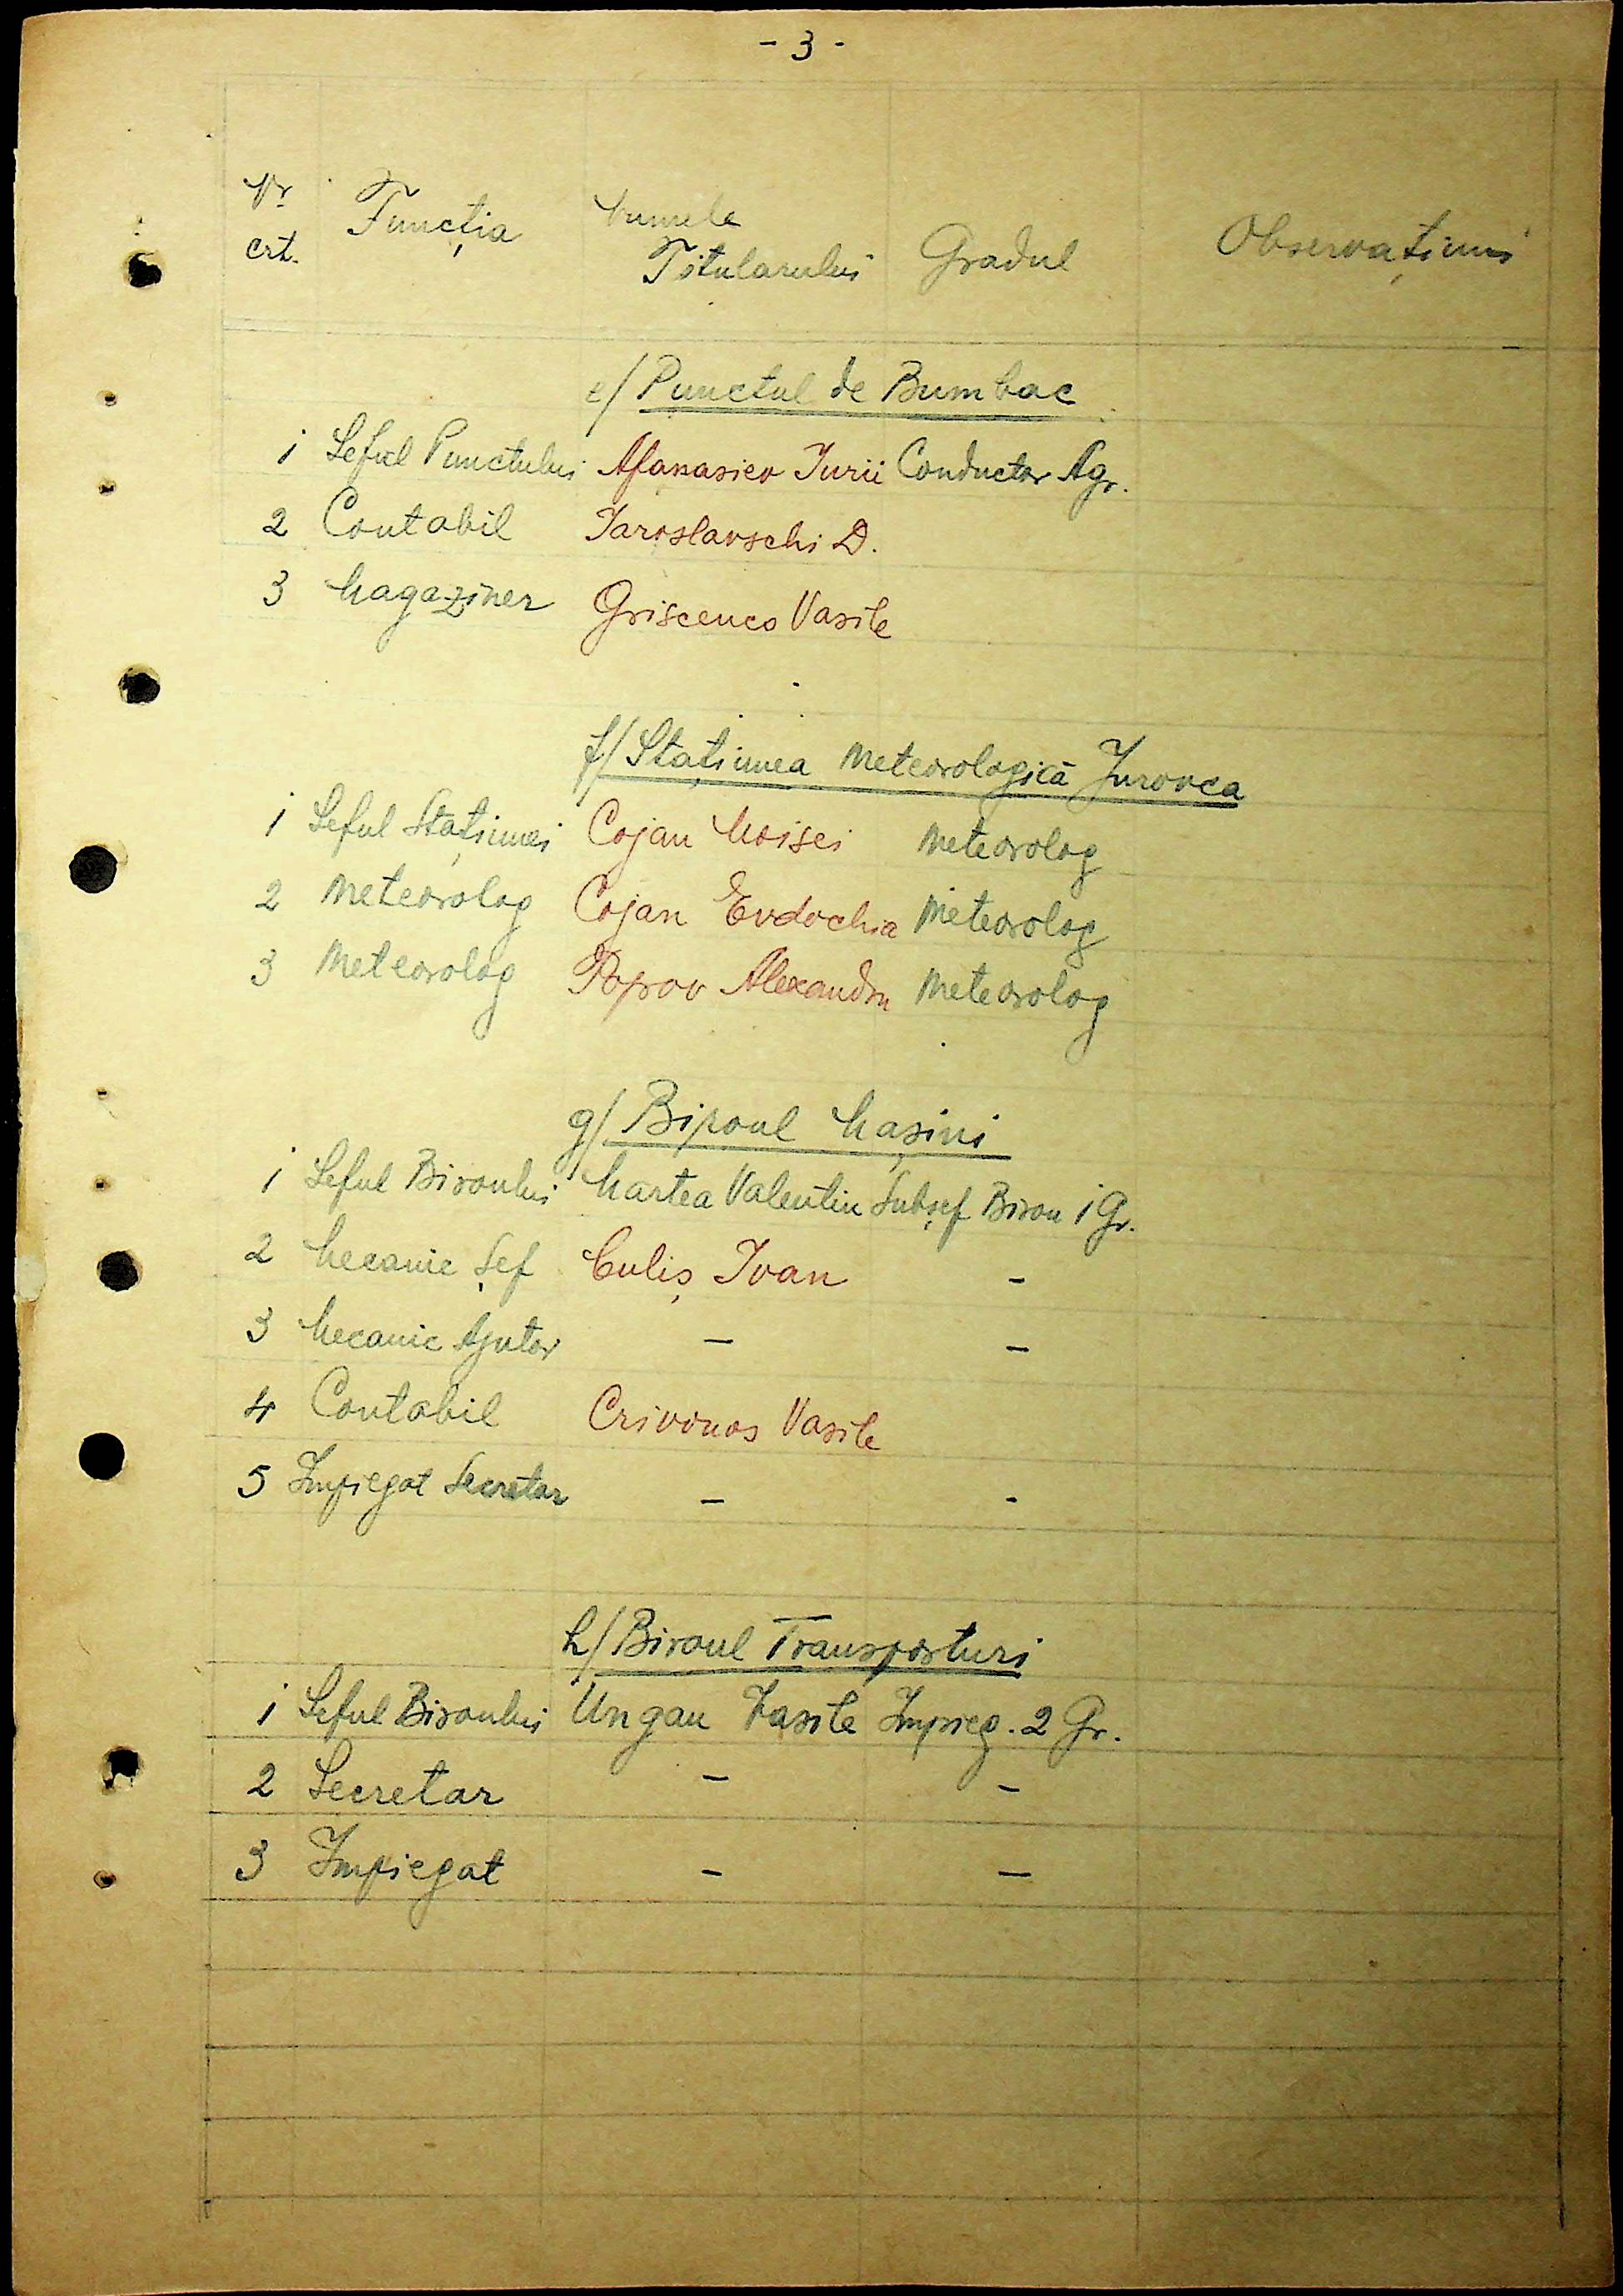 - 3 -
Nr. crt. Funcția Numele Titularului Gradul Observațiuni
e/ Punctul de Bumbac
1 Șeful Punctului Afanasiev Iurii Conductor Agr.
2 Contabil Iaroslavschi D.
3 Magaziner Griscenco Vasile
f/ Stațiunea Meteorologică Jurovca
1 Șeful Stațiunei Cojan Moisei Meteorolog
2 Meteorolog Cojan Evdochia Meteorolog
3 Meteorolog Popov Alexandru Meteorolog
g/ Biroul Mașini
1 Șeful Biroului Martea Valentin Subșef Birou 1 Gr.
2 Mecanic Șef Culiș Ivan -
3 Mecanic Ajutor - -
4 Contabil Crivonos Vasile
5 Impiegat Secretar - -
h/ Biroul Transporturi
1 Șeful Biroului Ungau Vasile Impieg. 2 Gr.
2 Secretar - -
3 Impiegat - -